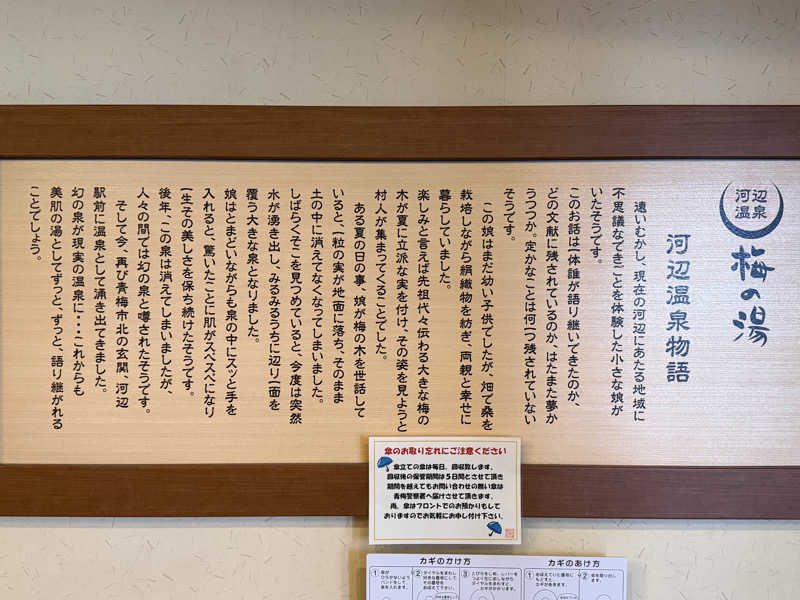 河辺
温泉
梅の湯
河辺温泉物語
遠いむかし、現在の河辺にあたる地域に
不思議なできごとを体験した小さな娘が
いたそうです。
このお話は一体誰が語り継いできたのか、
どの文献に残されているのか、はたまた夢か
うつつか。定かなことは何一つ残されていない
そうです。
この娘はまだ幼い子供でしたが、畑で桑を
栽培しながら絹織物を紡ぎ、両親と幸せに
暮らしていました。
楽しみと言えば先祖代々伝わる大きな梅の
木が夏に立派な実を付け、その姿を見ようと
村人が集まってくることでした。
ある夏の日の事、娘が梅の木を世話して
いると、一粒の実が地面に落ち、そのまま
土の中に消えてなくなってしまいました。
しばらくそこを見つめていると、今度は突然
水が湧き出し、みるみるうちに辺り一面を
覆う大きな泉となりました。
娘はとまどいながらも泉の中にスッと手を
入れると、驚いたことに肌がスベスベになり
一生その美しさを保ち続けたそうです。
後年、この泉は消えてしまいましたが、
人々の間では幻の泉と噂されたそうです。
そして今、再び青梅市北の玄関、河辺
駅前に温泉として涌き出てきました。
幻の泉が現実の温泉に・・・これからも
美肌の湯としてずっと、ずっと、語り継がれる
ことでしょう。
傘のお取り忘れにご注意ください
傘立ての傘は毎日、回収致します。
回収後の保管期間は5日間とさせて頂き
期間を越えてもお問い合わせの無い傘は
青梅警察署へ届けさせて頂きます。
尚、傘はフロントでのお預かりもして
おりますのでお気軽にお申し付け下さい。
カギのかけ方
カギのあけ方